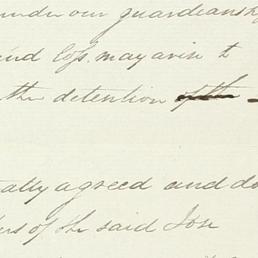 under our guardiansh
and loss may arise t
the detention of th
ally agreed and do
ers of the said Jose